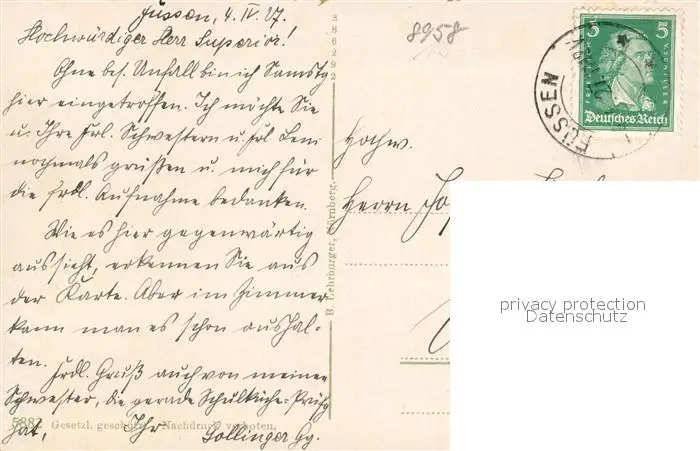 Füssen, 4. IV. 27.
Hochwürdiger Herr Superior!
Ohne bes. Unfall bin ich Samstg
hier eingetroffen. Ich möchte Sie
u. Ihre Frl. Schwestern u. Frl. Leni
nochmals grüßen u. mich für
die frdl. Aufnahme bedanken.
Wie es hier gegenwärtig
aussieht, erkennen Sie aus
der Karte. Aber im Zimmer
kann man es schon aushal-
ten.
Frdl. Gruß auch von meiner
Schwester, die gerade Schulküche-Prüfg
hat,
Ihr
Sollinger Gg.
5882 Gesetzl. geschützt. Nachdruck verboten.
B. Lehrburger, Nürnberg.
386292
8958
Hochw.
Herrn
5 5
Deutsches Reich
FÜSSEN
privacy protection
Datenschutz